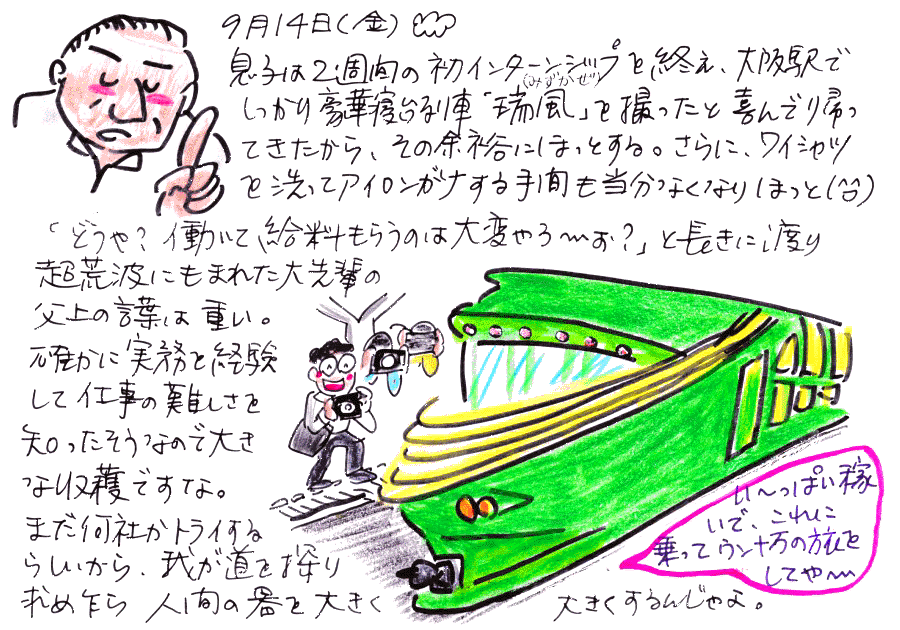 9月14日(金)
息子は2週間の初インターンシップを終え、大阪駅で
しっかり豪華寝台列車「瑞風」を撮ったと喜んでり帰っ
(みずかぜ)
てきたから、その余裕にほっとする。さらに、ワイシャツ
を洗ってアイロンがけする手間も当分なくなりほっと(^^)
「どうや?働いて給料もらうのは大変やろ〜お?」と長きに渡り
超荒波にもまれた大先輩の
父上の言葉は重い。
確かに実務を経験
して仕事の難しさを
知ったそうなので大き
な収穫ですな。
まだ何社かトライする
らしいから、我が道を探り
求め乍ら 人間の器を大きく
大きくするんじゃよ。
い〜っぱい稼
いで、これに
乗ってウン十万の旅を
してや〜